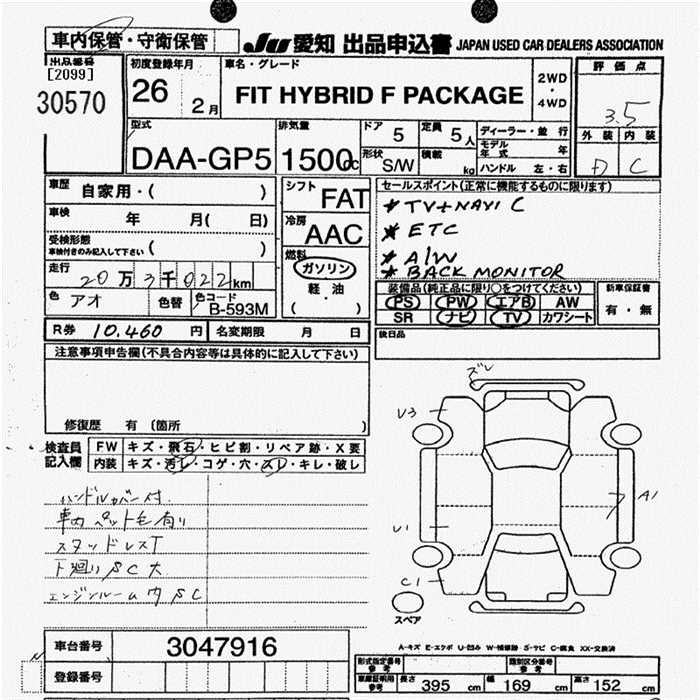 車内保管・守衛保管
JU 愛知 出品申込書 JAPAN USED CAR DEALERS ASSOCIATION
出品番号
[2099]
30570
初度登録年月
26 2月
車名・グレード
FIT HYBRID F PACKAGE
2WD
・
4WD
評価点
3.5
外装 内装
D C
型式
DAA-GP5
排気量
1500cc
ドア 5
形状 S/W
定員 5人
積載 kg
ディーラー・並行
モデル年式 年
ハンドル 左・右
車歴 自家用・( )
車検 年 月( 日)
受検形態
車検付きのみ記入して下さい ( )
走行 20万3千022km
色 アオ 色替 色コード B-593M
シフト FAT
冷房 AAC
燃料
ガソリン
軽・油
( )
セールスポイント(正常に機能するものに限ります)
* TV+NAVI C
* ETC
* A/W
* BACK MONITOR
装備品(純正品に限り○をつけてください)
PS PW エアB AW
SR ナビ TV カワシート
新車保証書
有・無
R券 10,460円 名変期限 月 日
後日品
注意事項申告欄(不具合内容等は具体的に記入して下さい)
修復歴 有 (箇所 )
検査員
記入欄
FW キズ・飛石・ヒビ割・リペア跡・X要
内装 キズ・汚レ・コゲ・穴・スレ・キレ・破レ
ハンドルカバー付
車内ペット毛有り
スタッドレスT
下廻りSC大
エンジンルーム内SC
ズレ
U3
A1
U1
C1
スペア
A-キズ E-エクボ U-凹み W-補修跡 S-サビ C-腐食 XX-交換済
車台番号 3047916
登録番号
型式指定番号
参考
類別区分番号
参考
車庫証明用
参考
長さ 395 cm 幅 169 cm 高さ 152 cm